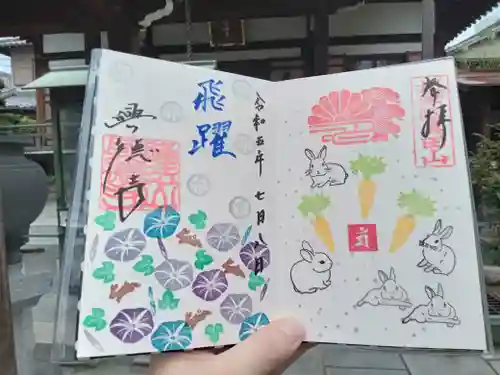 奉拝
令和五年 七月八日
飛躍
興徳寺